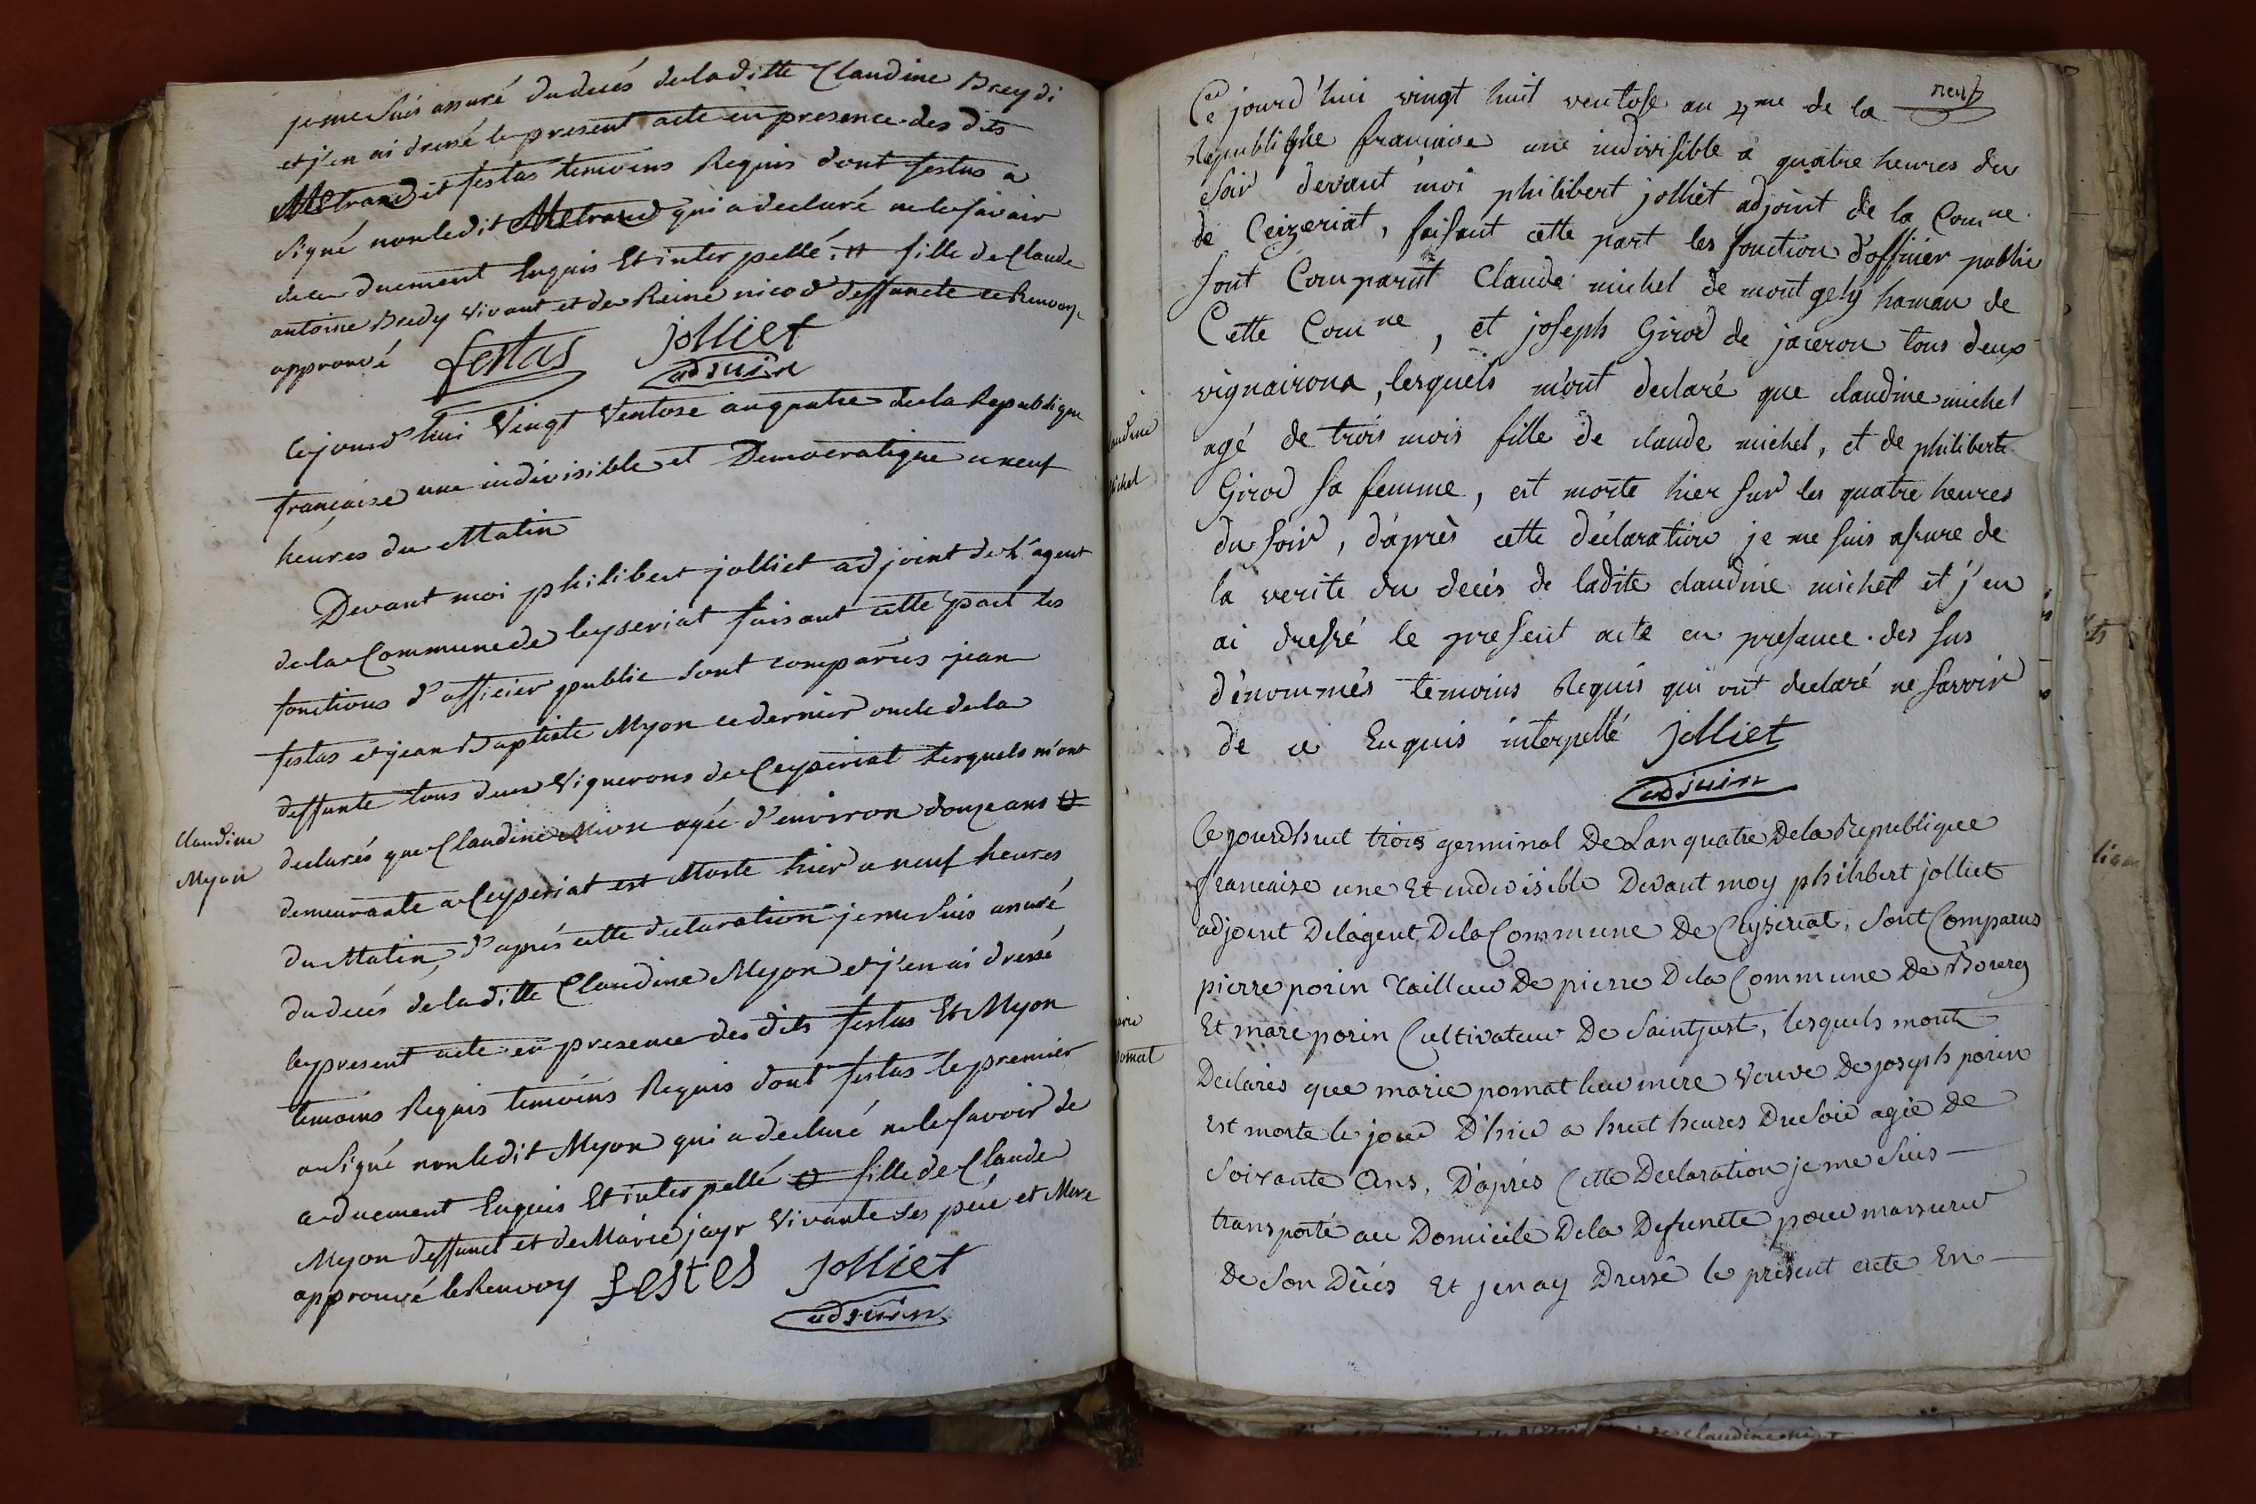 je me suis assuré du decés de laditte Claudine Breydi
et j'en ai dressé le present acte en presence des dits
Metrand et festas temoins Requis dont festas a
signé non ledit Metrand qui a declaré ne le savoir
de ce duement Enquis Et interpellé. # fille de Claude
antoine Bredy vivant et de Reine nicod deffuncte ce Renvoy
approuvé festas jolliet
adjoin
Cejourd'hui Vingt Ventose an quatre de la Republique
francaise une indivisible et Democratique a neuf
heures du Matin
Devant moi philibert jolliet adjoint de l'agent
de la Commune de Ceyseriat faisant cette part les
fonctions d'officier public sont comparus jean
festas et jean Baptiste Myon ce dernier oncle de la
deffunte tous deux Vignerons de Ceyseriat lesquels m'ont
Claudine
Myon
declarés que Claudine Mion agée d'environ douze ans #
demeurante a Ceyseriat est Morte hier a neuf heures
du Matin, d'aprés cette declaration je me suis assuré
du decés de laditte Claudine Myon et j'en ai dressé
le present acte en presence des dits festas Et Myon
temoins Requis temoins Requis dont festas le premier
a signé non ledit Myon qui a declaré ne le savoir de
ce duement Enquis Et interpellé # fille de Claude
Myon deffunct et de Marie jayr Vivante ses peré et Mere
approuvé le Renvoy festes jolliet
adjoin
neuf
Ce jourd'hui vingt huit ventose an 4me de la
Republique francaise une indivisible a quatre heures du
soir devant moi philibert jolliet adjoint de la Comne
de Ceizeriat, faisant cette part les fonction d'officier public
sont Comparut Claude michel de montgely hamau de
Cette Comne, et joseph Girod de jaceron tous deux
vignairons, lesquels m'ont declaré que claudine michel
audine
ichel
agé de trois mois fille de claude michel, et de philiberte
Girod sa femme, est morte hier sur les quatre heures
du soir, d'après cette déclaration je me suis assure de
la verite du decés de ladite claudine michel et j'en
ai dressé le present acte en presance des sus
dénommés temoins Requis qui ont declaré ne savoir
de ce Enquis interpellé jolliet
adjoin
Ce jourdhuit trois germinal De Lan quatre De la Republique
francaise une Et indivisible Devant moy philibert jolliet
adjoint De lagent De la Commune De Ceyseriat, sont Comparus
pierre porin tailleur De pierre De la Commune De Bourg
Et marc porin Cultivateur De saint just, lesquels mont
arie
omat
Declarés que marie pomat leur mere veuve De joseph porin
est morte le jour D'hier a huit heures Du soir agée de
soixante Ans, D'aprés Cette Declaration je me suis
transporté au Domicile De la Defuncte pour massurer
De son Décés Et jenay Dressé le présent acte En